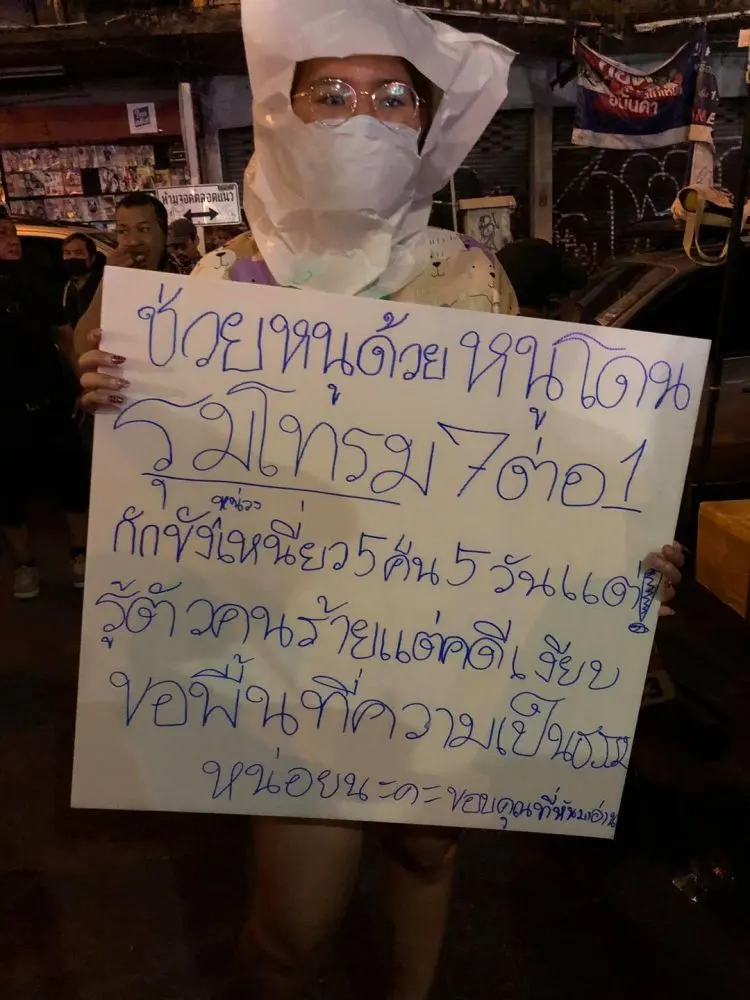 ห้ามจอดตลอดแนว
ช่วยหนูด้วยหนูโดน
รุมโทรม 7 ต่อ 1
กักขังหน่วงเหนี่ยว 5 คืน 5 วัน แต่
รู้ตัวคนร้ายแต่คดีเงียบ
ขอพื้นที่ความเป็นธรรม
หน่อยนะคะ ขอบคุณที่หันมาอ่าน